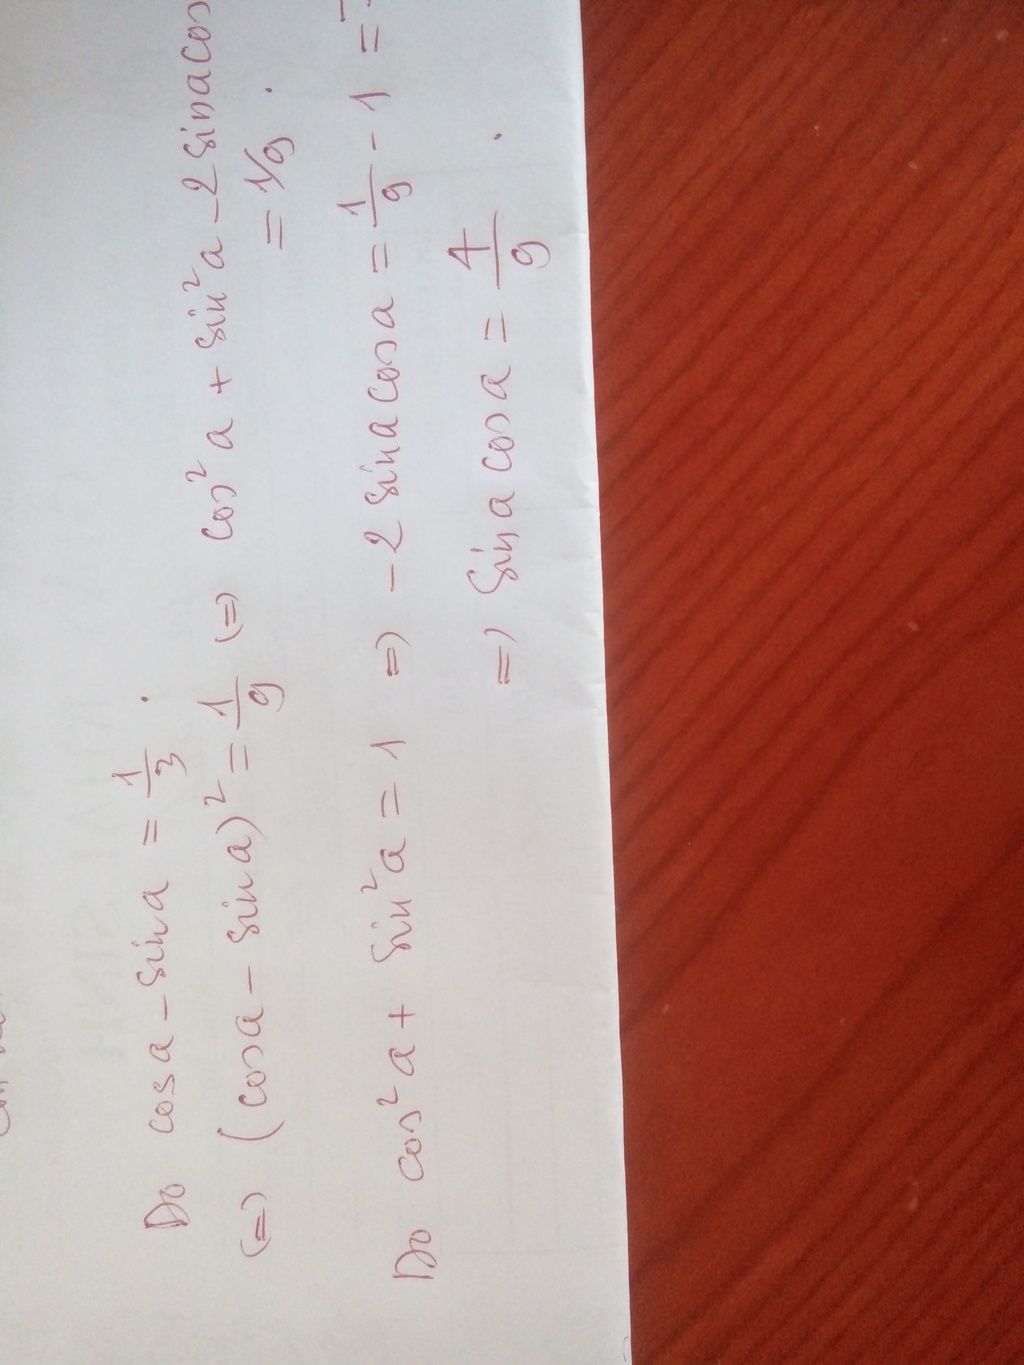 Do cosa - sina = 1/3.
(=) (cosa - sina)² = 1/9 (=) cos²a + sin²a - 2sinacos
= 1/9.
Do cos²a + sin²a = 1 =) - 2 sinacosa = 1/9 - 1 =
=) sinacosa = 4/9.